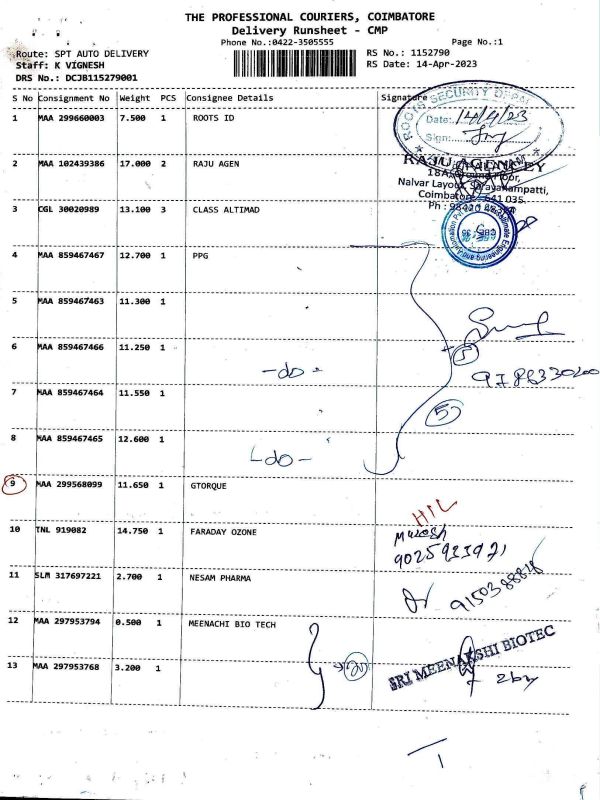 THE PROFESSIONAL COURIERS, COIMBATORE
Delivery Runsheet - CMP
Phone No.:0422-3505555
Page No.:1
Route: SPT AUTO DELIVERY
RS No.: 1152790
Staff: K VIGNESH
RS Date: 14-Apr-2023
DRS No.: DCJB115279001
S No Consignment No Weight PCS Consignee Details Signature
ROOTS SECURITY DEPAR
Date: 14/4/23
Sign:
1 MAA 299660003 7.500 1 ROOTS ID
2 MAA 102439386 17.000 2 RAJU AGEN
RAJU AGENCY
18A, Ground Floor,
Nalvar Layout,
Coimbatore - 641 035.
3 CGL 30020989 13.100 3 CLASS ALTIMAD
4 MAA 859467467 12.700 1 PPG
5 MAA 859467463 11.300 1
6 MAA 859467466 11.250 1
-do-
5
7 MAA 859467464 11.550 1
5
8 MAA 859467465 12.600 1
-do-
9 MAA 299568099 11.650 1 GTORQUE
HIL
10 TNL 919082 14.750 1 FARADAY OZONE
9025933971
11 SLM 317697221 2.700 1 NESAM PHARMA
12 MAA 297953794 0.500 1 MEENACHI BIO TECH
SRI MEENAKSHI BIOTEC
13 MAA 297953768 3.200 1